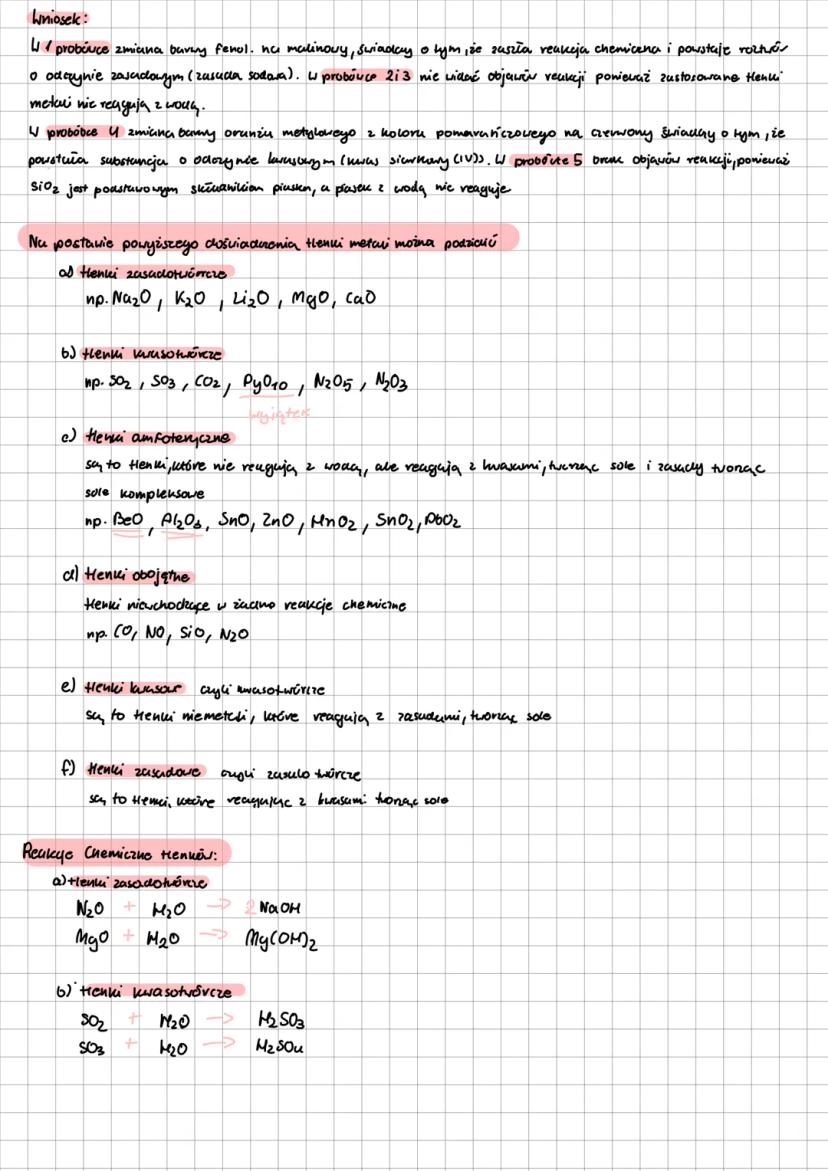 Wniosek:
W 1 probówce zmiana barwy fenol. na malinowy, świadczy o tym, że zaszła reakcja chemiczna i powstaje roztwór
o odczynie zasadowym (zasada sodowa). W probówce 2i3 nie widać objawów reakcji ponieważ zastosowane tlenki
metali nie reagują z wodą.
W probówce 4 zmiana barwy oranżu metylowego z koloru pomarańczowego na czerwony świadczy o tym, że
powstała substancja o odczynie kwasowym (kwas siarkowy (IV)). W probówce 5 brak objawów reakcji, ponieważ
SiO2 jest podstawowym składnikiem piasku, a piasek z wodą nie reaguje
Na postawie powyższego doświadczenia tlenki metali można podzielić
a) tlenki zasadotwórcze
np. Na2O, K2O, Li2O, MgO, CaO
b) tlenki kwasotwórcze
np. SO2, SO3, CO2, P4O10, N2O5, N2O3
wyjątek
c) tlenki amfoteryczne
są to tlenki, które nie reagują z wodą, ale reagują z kwasami, tworząc sole i zasady tworząc
sole kompleksowe
np. BeO, Al2O3, SnO, ZnO, MnO2, SnO2, PbO2
d) tlenki obojętne
tlenki niewchodzące w żadne reakcje chemiczne
np. CO, NO, SiO, N2O
e) tlenki kwasowe czyli kwasotwórcze
są to tlenki niemetali, które reagują z zasadami, tworząc sole
f) tlenki zasadowe czyli zasadotwórcze
są to tlenki, które reagując z kwasami tworząc sole
Reakcje Chemiczne tlenków:
a) tlenki zasadotwórcze
N2O + H2O → 2 NaOH
MgO + H2O → Mg(OH)2
b) tlenki kwasotwórcze
SO2 + H2O → H2SO3
SO3 + H2O → H2SO4